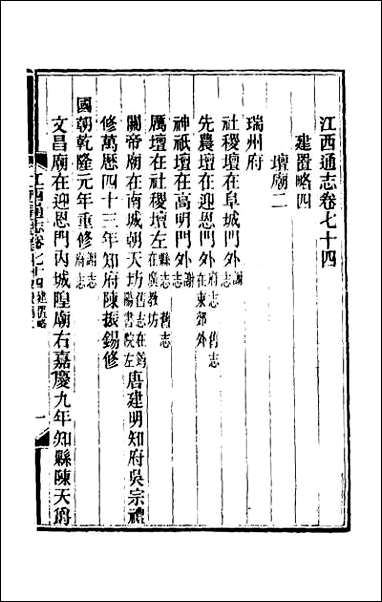 江西通志卷七十四
建置略四
壇廟二
瑞州府
社稷壇在阜城門外謝志
先農壇在迎恩門外府志舊志在東郊外
神祇壇在高明門外謝志
厲壇在社稷壇左縣志舊志在廣教坊
關帝廟在南城朝天坊舊志在筠陽書院左唐建明知府吳宗禮
修萬歷四十三年知府陳振錫修
國朝乾隆元年重修謝志府志
文昌廟在迎恩門內城隍廟右嘉慶九年知縣陳天爵
江西通志卷七十四 建置略
一